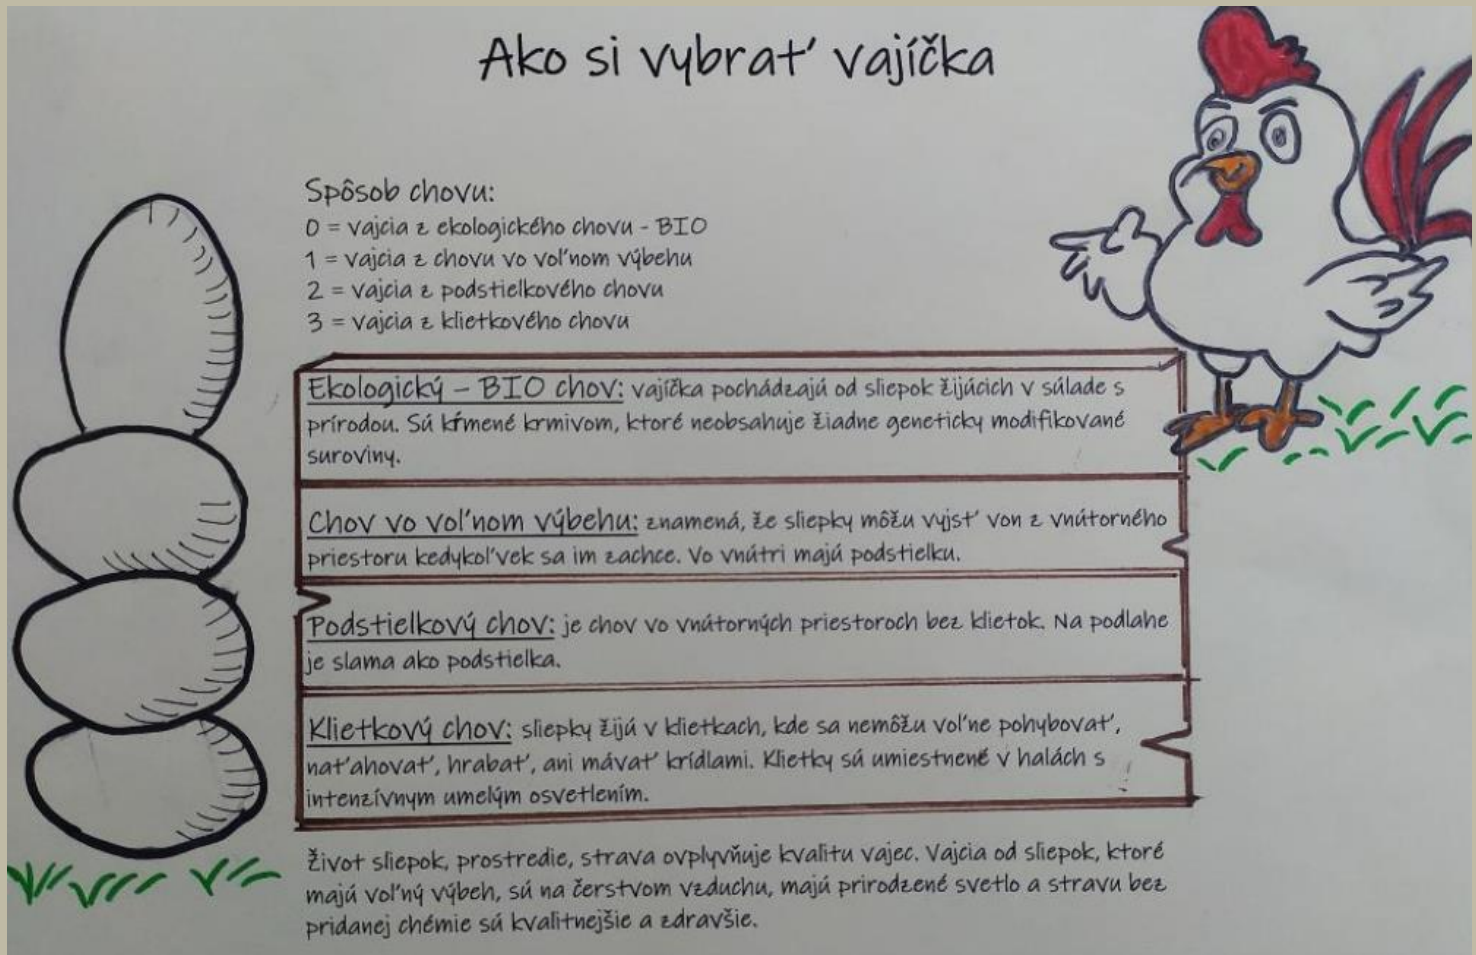 Ako si vybrať vajíčka
Spôsob chovu:
0 = vajcia z ekologického chovu - BIO
1 = vajcia z chovu vo voľnom výbehu
2 = vajcia z podstielkového chovu
3 = vajcia z klietkového chovu
Ekologický – BIO chov: vajíčka pochádzajú od sliepok žijúcich v súlade s
prírodou. Sú kŕmené krmivom, ktoré neobsahuje žiadne geneticky modifikované
suroviny.
Chov vo voľnom výbehu: znamená, že sliepky môžu vyjsť von z vnútorného
priestoru kedykoľvek sa im zachce. Vo vnútri majú podstielku.
Podstielkový chov: je chov vo vnútorných priestoroch bez klietok. Na podlahe
je slama ako podstielka.
Klietkový chov: sliepky žijú v klietkach, kde sa nemôžu voľne pohybovať,
naťahovať, hrabať, ani mávať krídlami. Klietky sú umiestnené v halách s
intenzívnym umelým osvetlením.
Život sliepok, prostredie, strava ovplyvňuje kvalitu vajec. Vajcia od sliepok, ktoré
majú voľný výbeh, sú na čerstvom vzduchu, majú prirodzené svetlo a stravu bez
pridanej chémie sú kvalitnejšie a zdravšie.